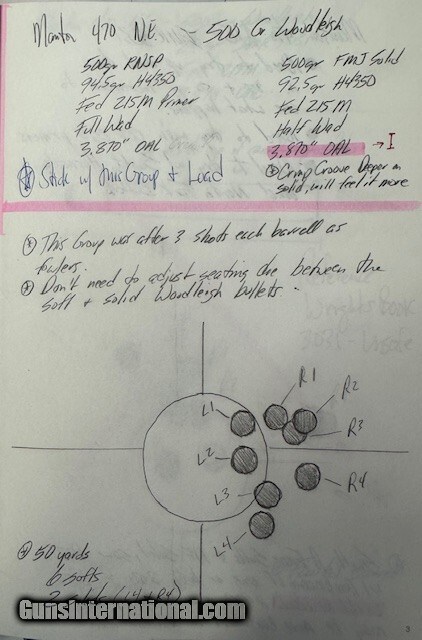 470 N.E. - 500 Gr Woodleigh
500gr RNSP
94.5gr H4350
Fed 215M Primer
Full Wad
3.870" OAL
500gr FMJ Solid
92.5gr H4350
Fed 215M
Half Wad
3.870" OAL → I
* Crimp Groove Deeper on
solid, will feel it more
* Stick w/ this Group + Load
* This Group was after 3 shots each barrell as
foulers.
* Don't need to adjust seating die between the
soft + solid Woodleigh bullets.
L1
R1
R2
R3
L2
L3
R4
L4
* 50 yards
6 softs
(L4 + R4)
GunsInternational.com
3